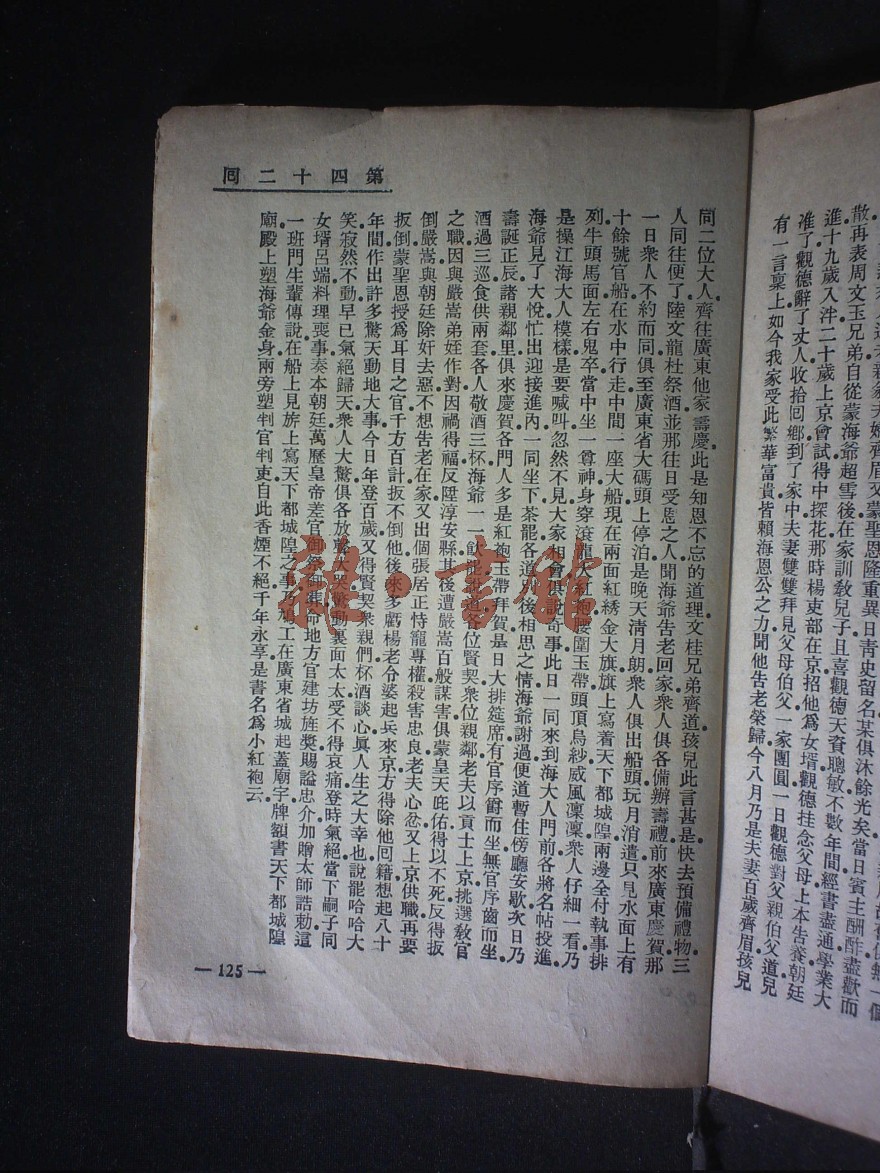 散再表周文玉兄弟自從蒙海爺超雪後在家訓敎兒子且喜觀德天資聰敏不數年間經書盡通學業大
進十九歲入泮二十歲上京會試得中探花那時楊吏部在京招他爲女壻觀德挂念父母上本告養朝廷
准了觀德辭了丈人收拾囘鄉到了家中夫妻雙雙拜見父母伯父一家團圓一日觀德對父親伯父道兒
有一言稟上如今我家受此繁華富貴皆賴海恩公之力聞他告老榮歸今八月乃是夫妻百歲齊眉孩兒
第四十二囘
同二位大人齊往廣東他家壽慶此是知恩不忘的道理文桂兄弟齊道孩兒此言甚是快去預備禮物三
人同往便了陸文龍杜祭酒並那往日受恩之人聞海爺告老回家衆人俱各備辦壽禮前來廣東慶賀那
一日衆人不約而同俱至廣東省大碼頭上停泊是晚天清月朗衆人俱出船頭玩月消遣只見水面上有
十餘號官船在水中行走中間一座大船現在兩面紅綉金大旗旗上寫着天下都城隍兩邊全付執事排
列牛頭馬面左右鬼卒當中坐一尊神身穿滾龍大紅袍腰圍玉帶頭頂烏紗威風凜凜衆人仔細一看乃
是操江海大人模樣是要喊叫忽然不見大家相會俱說奇事此日一同來到海大人門前各將名帖投進
海爺見了大悅忙出迎接進內一同坐下茶罷各道別後相思之情海爺謝過便道暫住傍廳安歇次日乃
壽誕正辰諸親鄰里俱來慶賀各門人多是紅袍玉帶拜賀是日大排筵席有官序爵而坐無官序齒而坐
酒過三巡食供兩套各人敬酒三杯海爺一一飲罷說道各位賢契衆位親鄰老夫以貢士上京挑選敎官
之職因與嚴嵩弟姪作對因禍得福反陞淳安縣其後遭嚴嵩百般謀害俱蒙皇天庇佑得以不死反得扳
倒嚴嵩與朝廷除奸去惡不想告老在家又出個張居正恃寵專權殺害忠良老夫心忿又上京供職再要
扳倒蒙聖恩授爲耳目之官千方百計扳不倒他後來多虧楊老令婆起兵來京方得除他囘籍想起八十
年間作出許多驚天動地大事今日年登百歲又得賢契衆親們杯酒談心眞人生之大幸也說罷哈哈大
笑寂然不動早已氣絕歸天衆人大驚俱各放聲大哭驚動裏面太太受不得哀痛登時氣絕當下嗣子同
女壻呂端料理喪事奏本朝廷萬歷皇帝差官御祭御葬命地方官建坊旌奬賜謚忠介加贈太師誥勅這
一班門生輩傳說在船上見旂上寫天下都城隍之事乃鳩工在廣東省城起蓋廟宇牌額書天下都城隍
廟殿上塑海爺金身兩旁塑判官判吏自此香煙不絕千年永享是書名爲小紅袍云
—125—